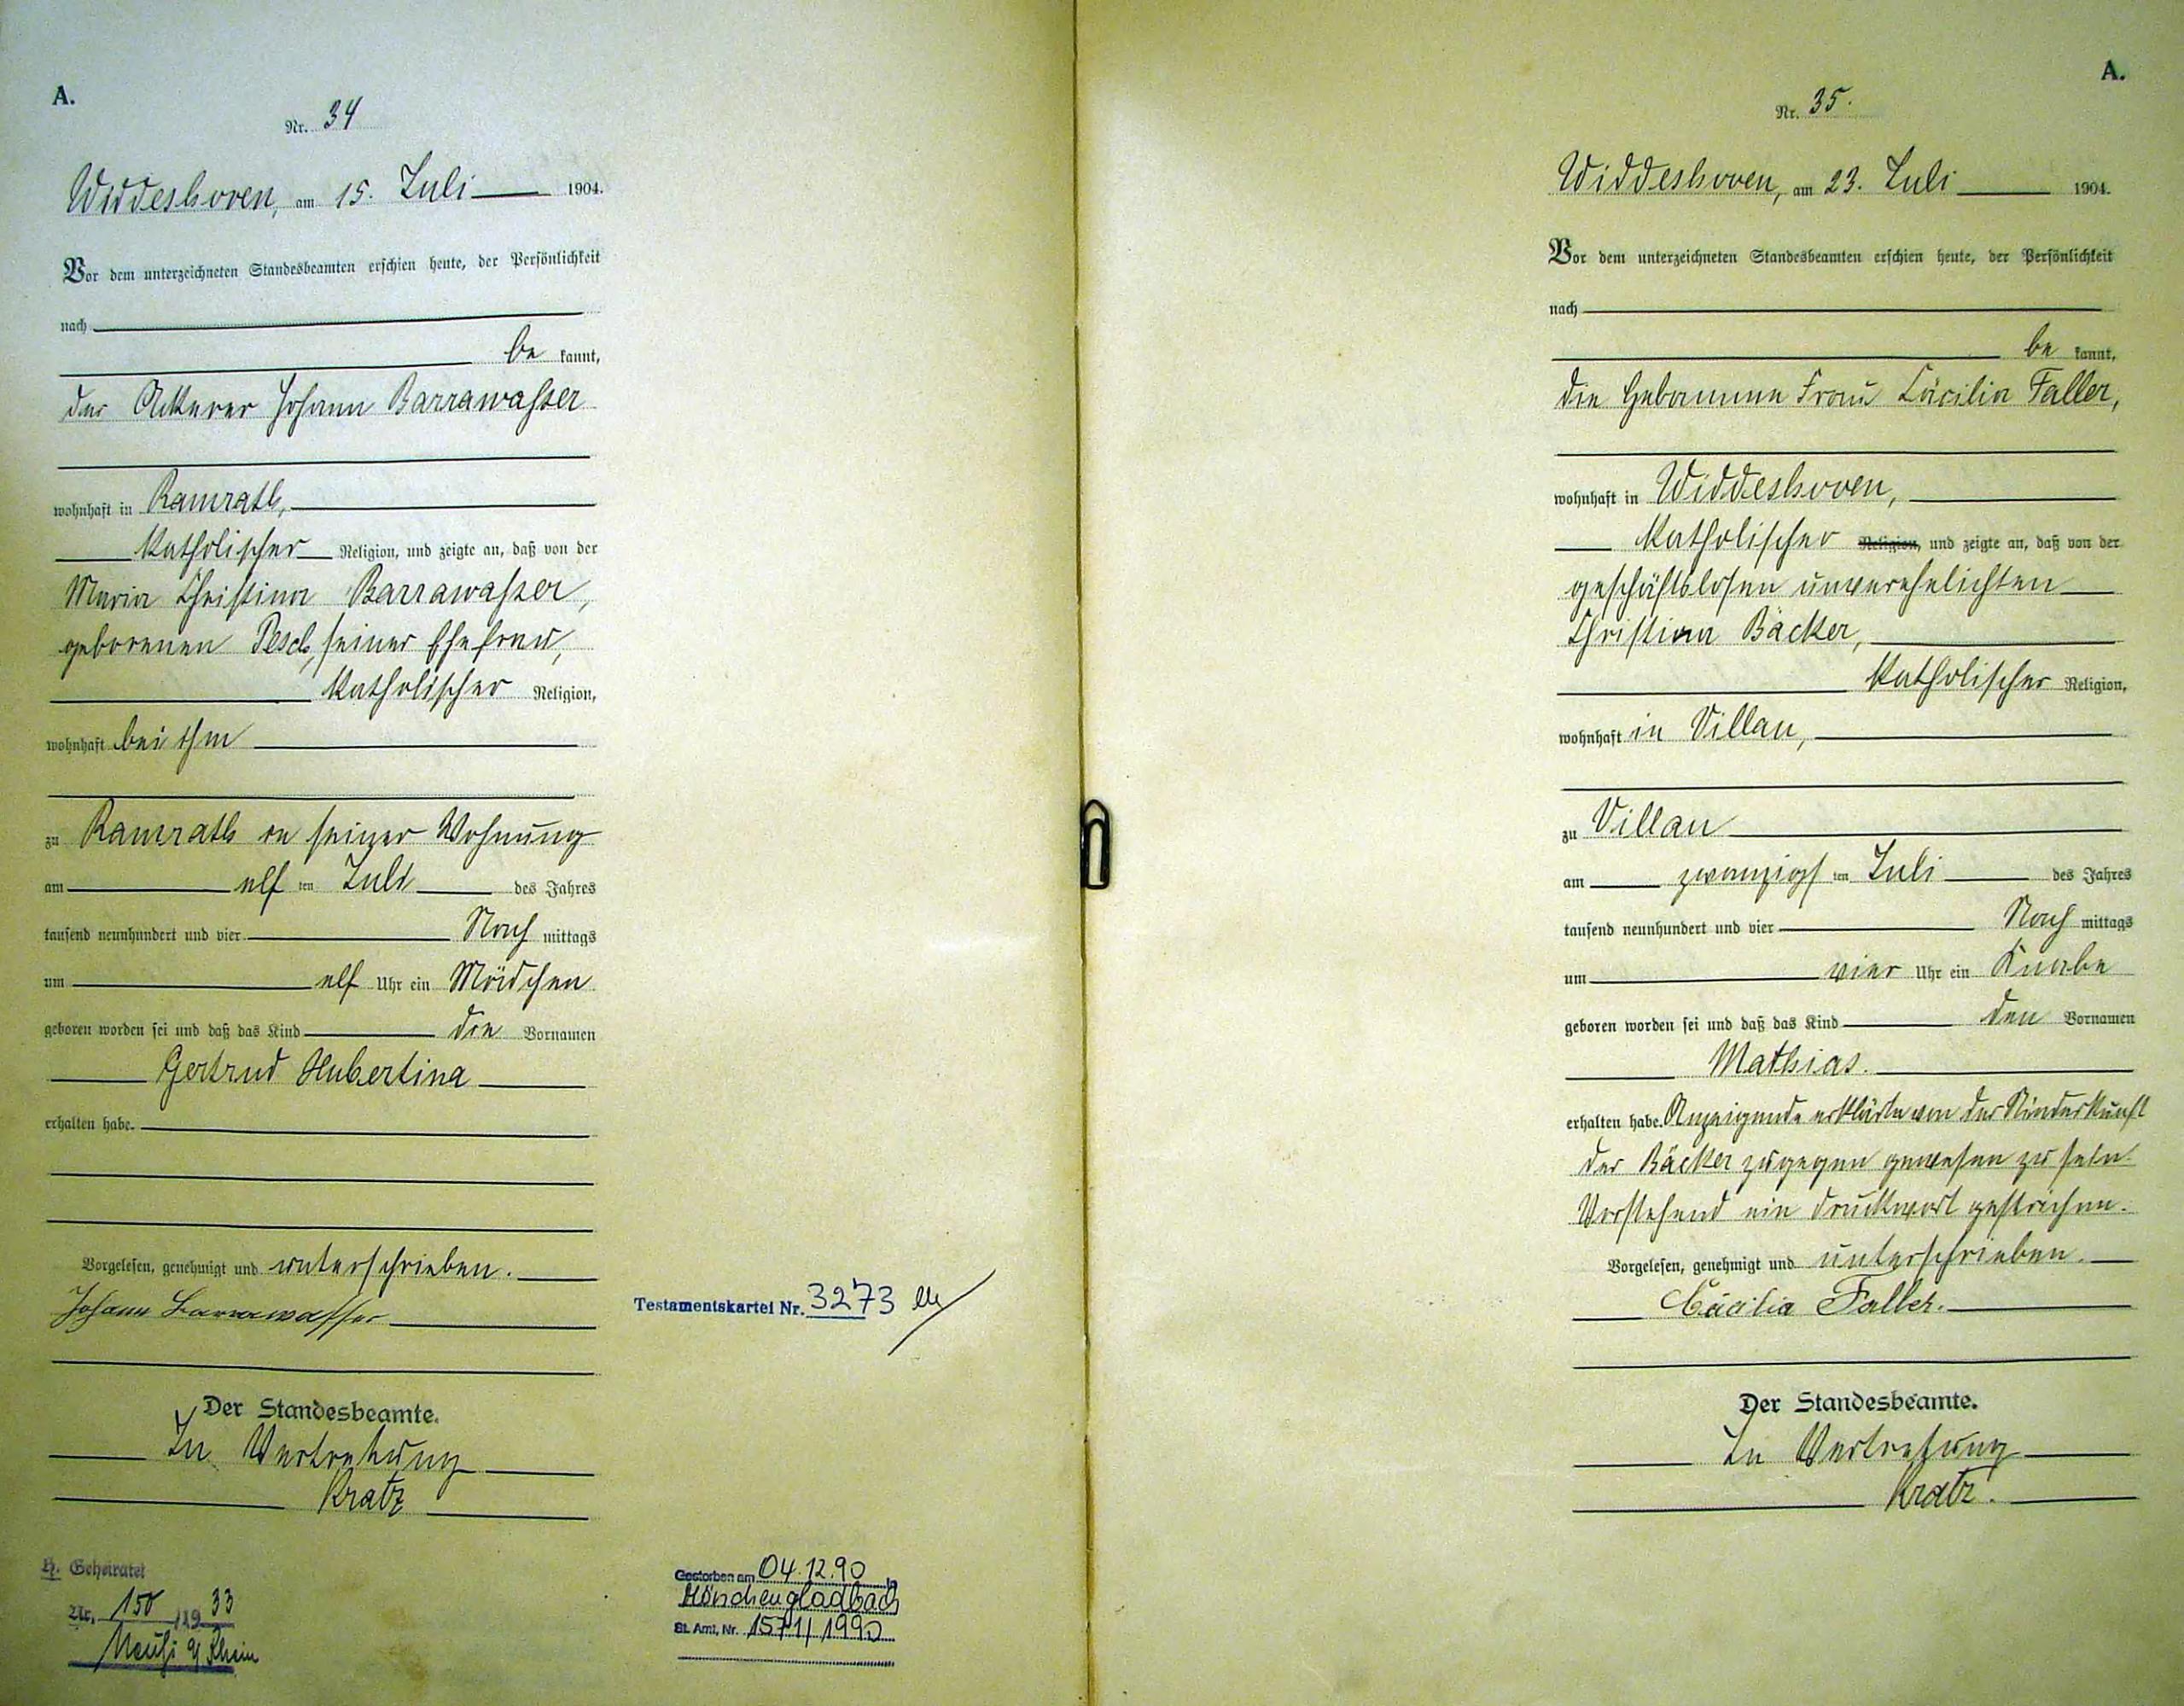 A.
Nr. 34
Widdeshoven, am 15. Juli 1904.
Vor dem unterzeichneten Standesbeamten erschien heute, der Persönlichkeit
nach
be kannt,
der Ackerer Johann Barrawaßer
wohnhaft in Ramrath,
katholischer Religion, und zeigte an, daß von der
Maria Christina Barrawaßer,
geborenen Pesch, seiner Ehefrau,
katholischer Religion,
wohnhaft bei ihm
zu Ramrath in seiner Wohnung
am elf ten Juli des Jahres
tausend neunhundert und vier Nach mittags
um elf Uhr ein Mädchen
geboren worden sei und daß das Kind die Vornamen
Gertrud Hubertina
erhalten habe.
Vorgelesen, genehmigt und unterschrieben.
Johann Barrawasser
Der Standesbeamte.
In Vertretung
Kratz
H. Geheiratet
Nr. 150 / 19 33
Neuß a/ Rhein
Testamentskartei Nr. 3273
Gestorben am 04.12.90 in
Mönchengladbach
St. Amt, Nr. 1571/1990
A.
Nr. 35.
Widdeshoven, am 23. Juli 1904.
Vor dem unterzeichneten Standesbeamten erschien heute, der Persönlichkeit
nach
be kannt,
die Hebamme Frau Cäcilia Faller,
wohnhaft in Widdeshoven,
katholischer Religion, und zeigte an, daß von der
geschäftslosen unverehelichten
Christina Bäcker,
katholischer Religion,
wohnhaft in Villau,
zu Villau
am zwanzigs ten Juli des Jahres
tausend neunhundert und vier Nach mittags
um vier Uhr ein Knabe
geboren worden sei und daß das Kind den Vornamen
Mathias.
erhalten habe. Anzeigende erklärte von der Niederkunft
der Bäcker zugegen gewesen zu sein.
Vorstehend ein Druckwort gestrichen.
Vorgelesen, genehmigt und unterschrieben.
Cäcilia Faller.
Der Standesbeamte.
In Vertretung
Kratz.